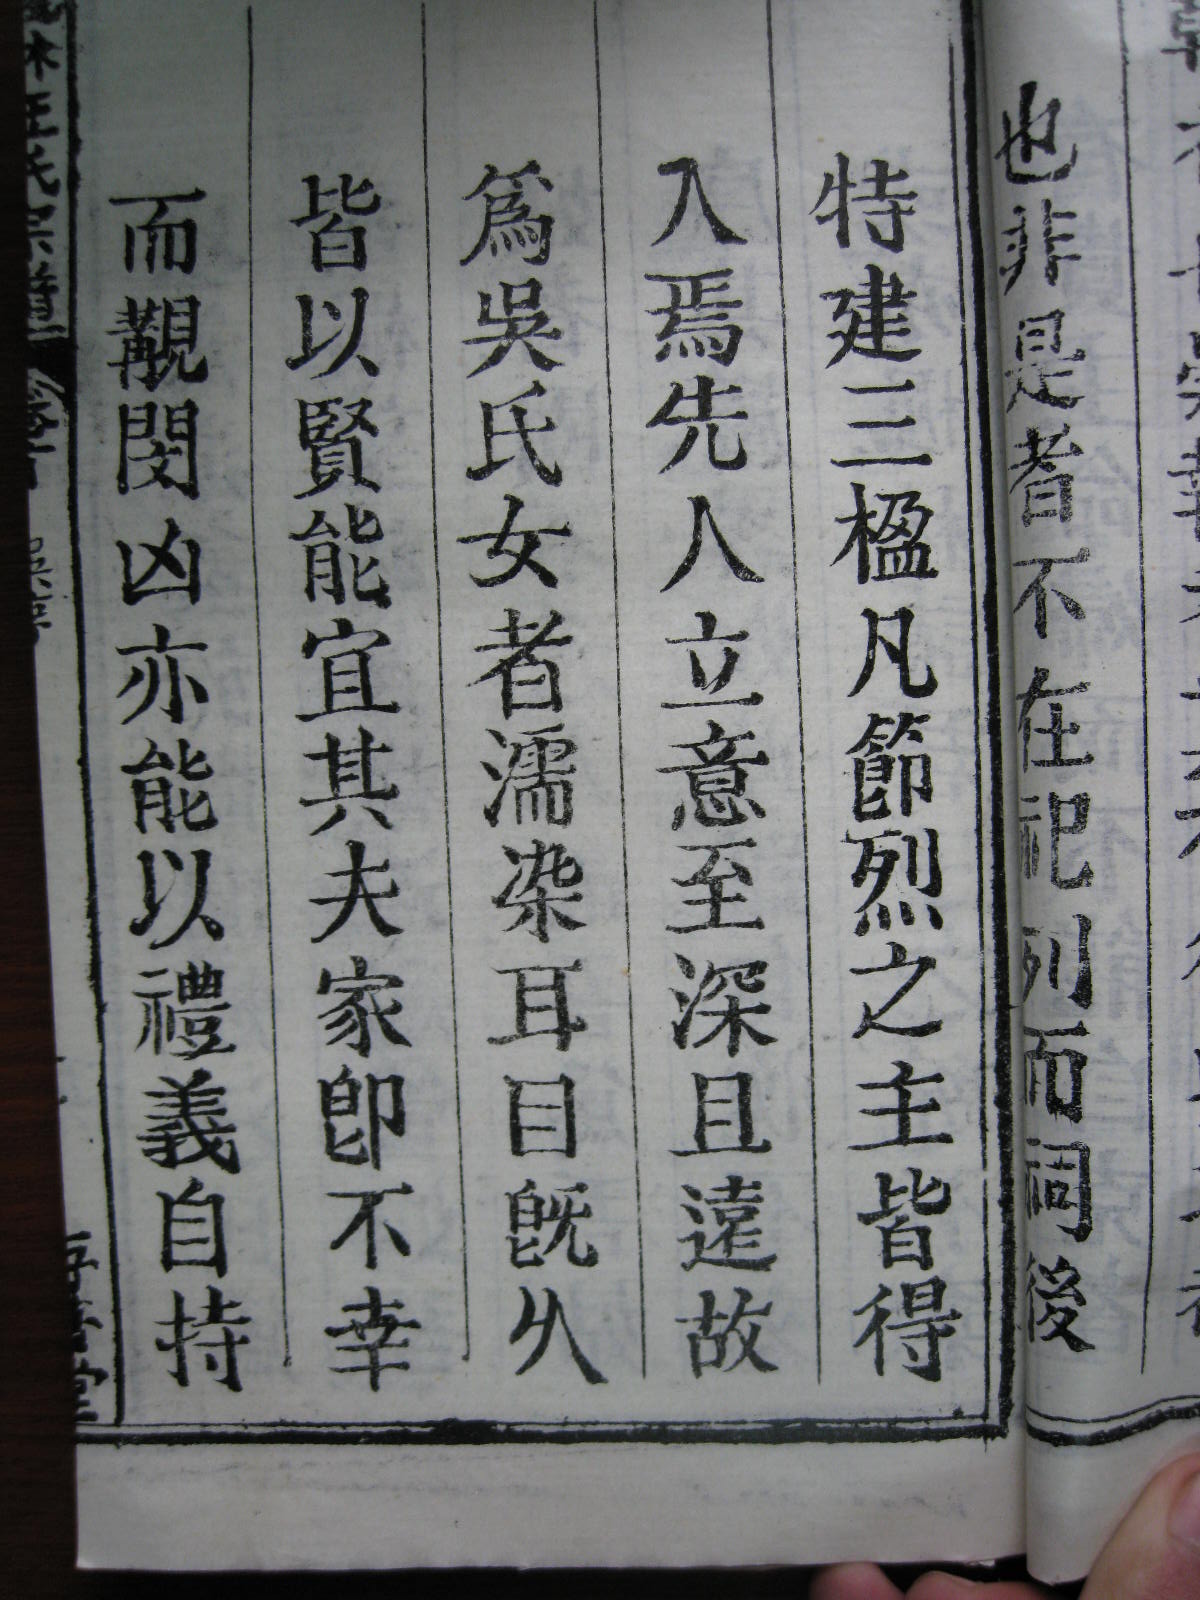 也非是者不在祀列而祠後
特建三楹凡節烈之主皆得
入焉先人立意至深且遠故
爲吳氏女者濡染耳目旣久
皆以賢能宜其夫家卽不幸
而覯閔凶亦能以禮義自持